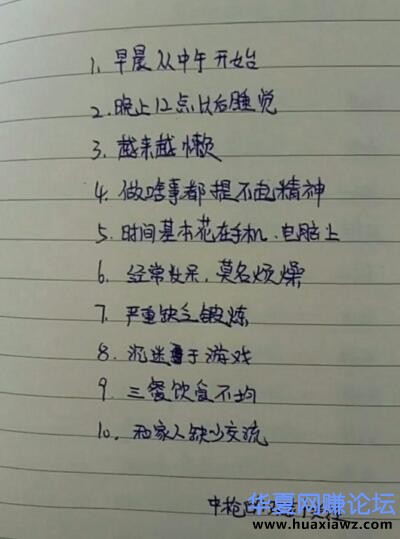 1. 早晨从中午开始
2. 晚上12点以后睡觉
3. 越来越懒
4. 做啥事都提不起精神
5. 时间基本花在手机、电脑上
6. 经常发呆,莫名烦燥
7. 严重缺乏锻炼
8. 沉迷于游戏
9. 三餐饮食不均
10. 和家人缺少交流
中枪
华夏网赚论坛
www.huaxiawz.com